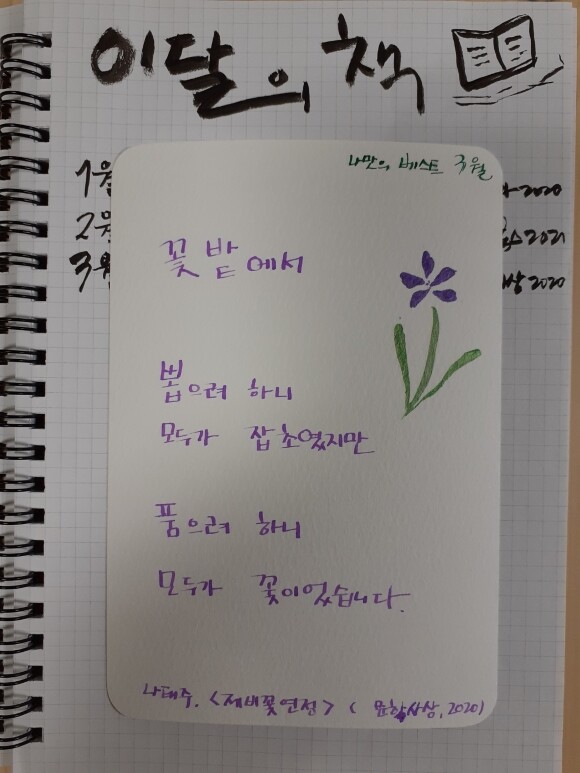 이달의 책
나만의 베스트 3월
1월
2020
2월
2021
3월
2020
꽃밭에서
뽑으려 하니
모두가 잡초였지만
품으려 하니
모두가 꽃이었습니다.
나태주. <제비꽃연정> (문학사상, 2020)